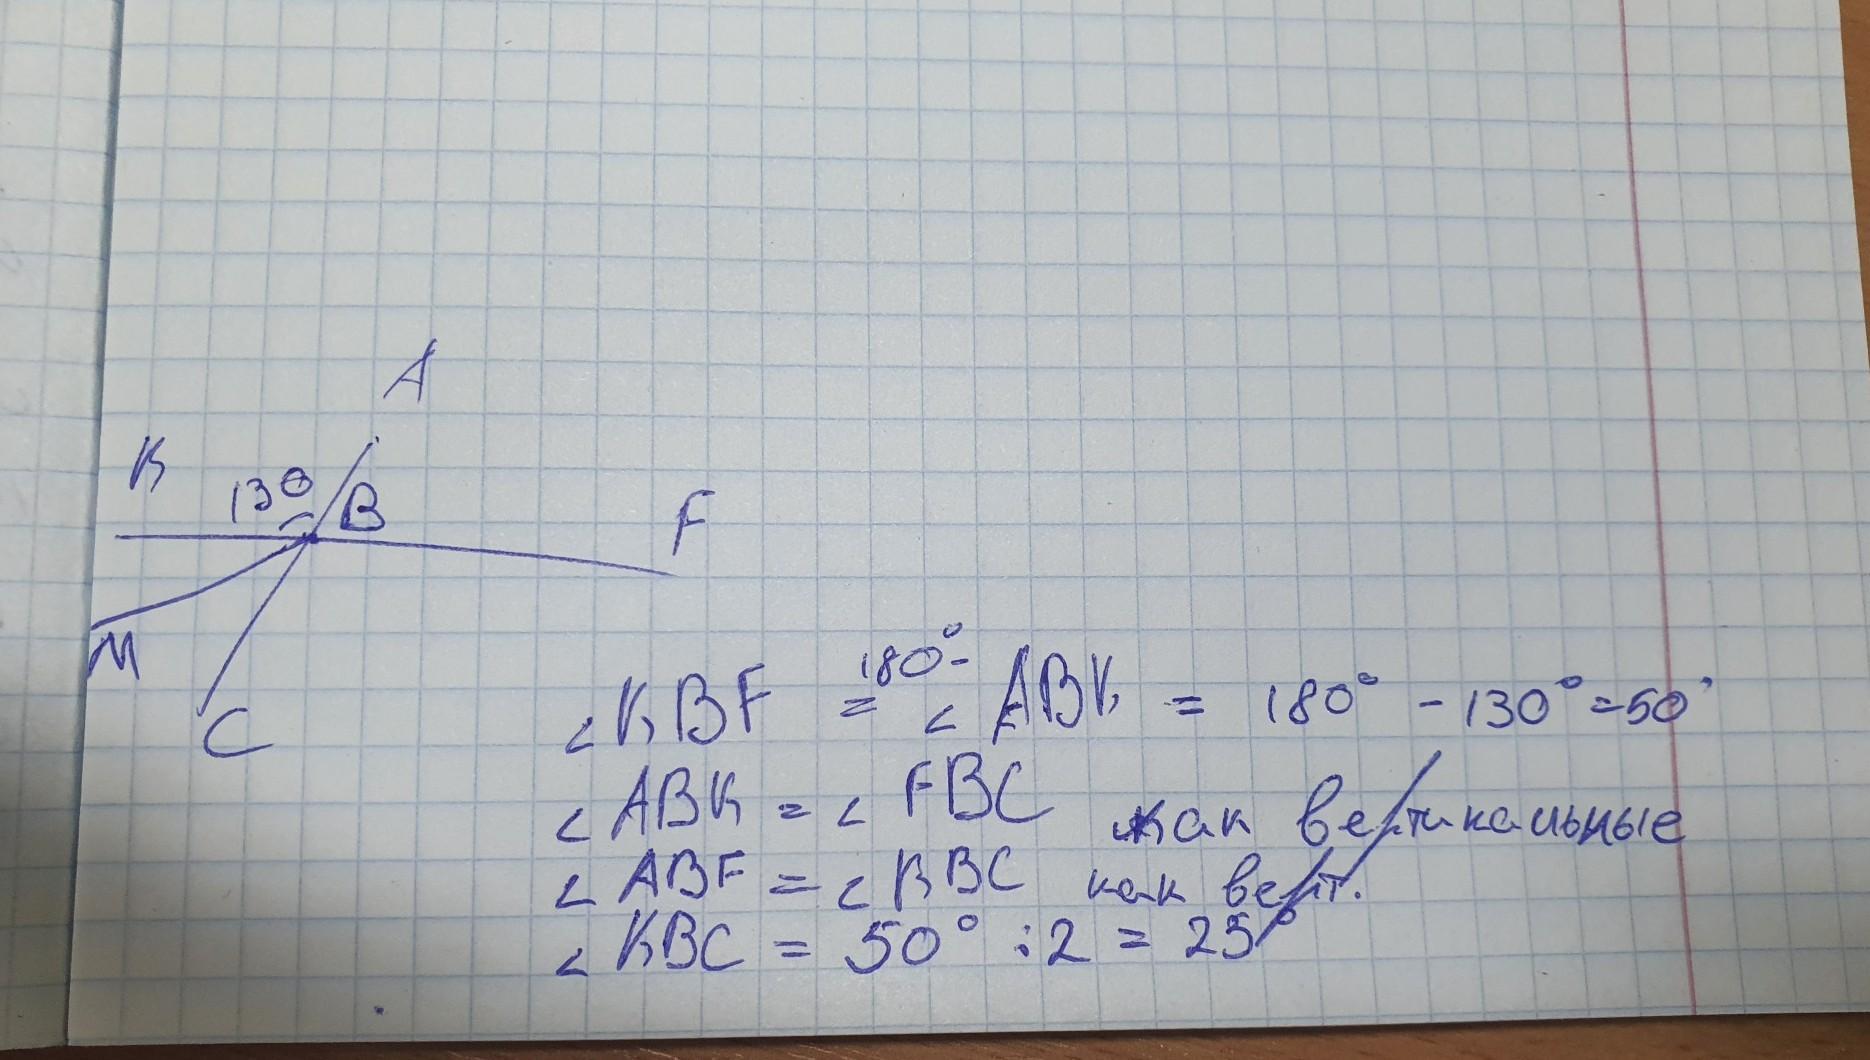 A
K
130
B
F
M
C
∠KBF = 180° - ∠ABK = 180° - 130° = 50°
∠ABK = ∠FBC как вертикальные
∠ABF = ∠KBC как верт.
∠KBC = 50° : 2 = 25°